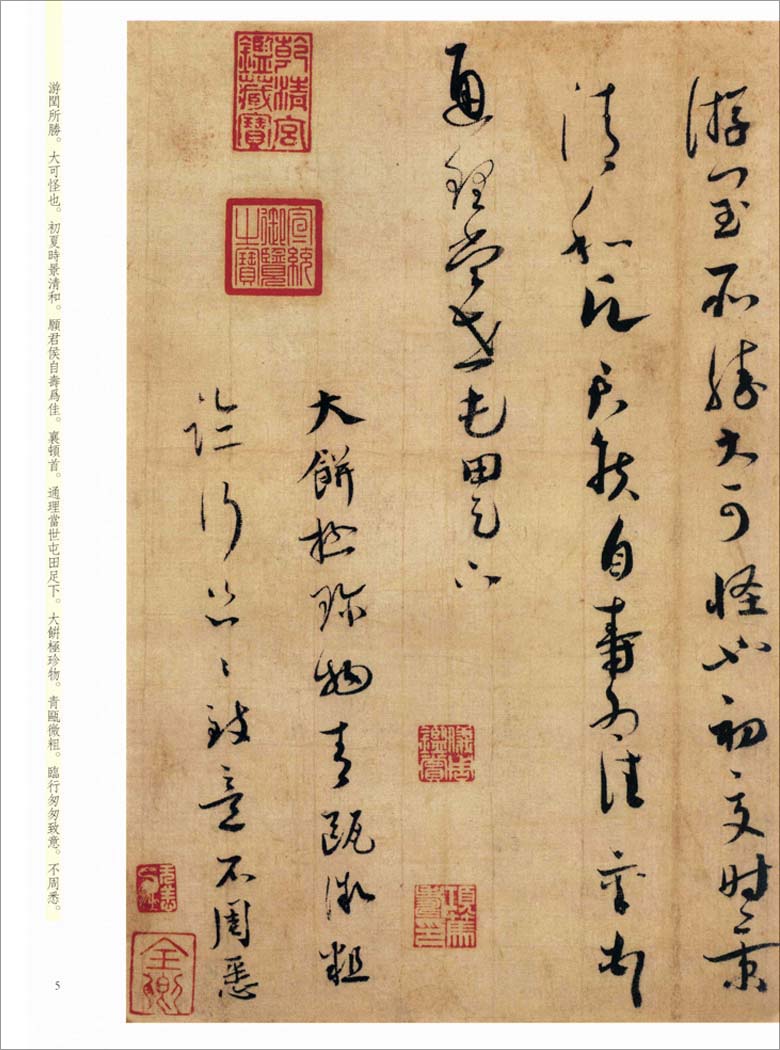 游閩所勝大可怪也初夏時景
清和願君侯自壽爲佳襄頓首
通理當世屯田足下
大餅極珍物青甌微粗
臨行匆々致意不周悉
乾清宮鑑藏寶
宣統御覽之寶
項篤壽印
全卿
游閩所勝。大可怪也。初夏時景清和。願君侯自壽爲佳。襄頓首。通理當世屯田足下。大餅極珍物。青甌微粗。臨行匆匆致意。不周悉。
5